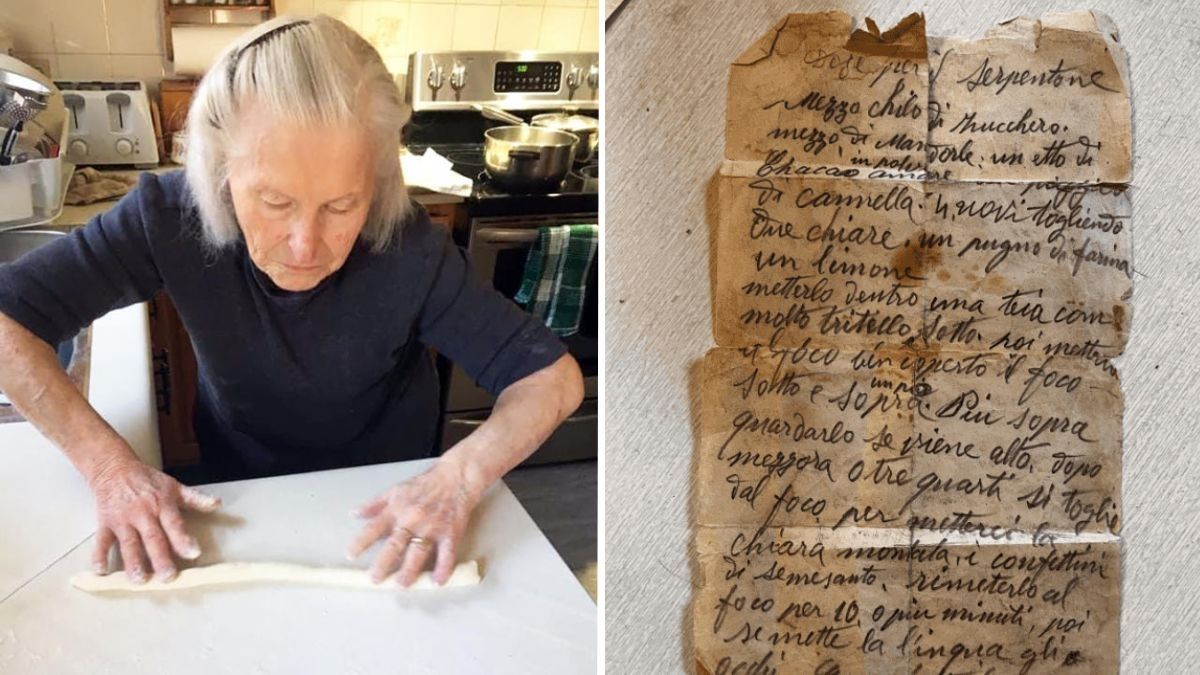 Dose per il serpentone
Mezzo chilo di zucchero.
mezzo di Mandorle. un etto di
Chacao amaro in polvere
di cannella. 4 uovi togliendo
Due chiare. un pugno di farina
un limone
metterlo dentro una teia com
molto tritello sotto. poi metter
foco ben coperto il foco
sotto e un po sopra. Piu sopra
guardarlo se viene alto. dopo
mezzora o tre quarti si toglie
dal foco per metterci la
chiara montata. i confettini
di semesanto. rimeterlo al
foco per 10. o piu minuti, poi
se mette la lingua gli
occhi